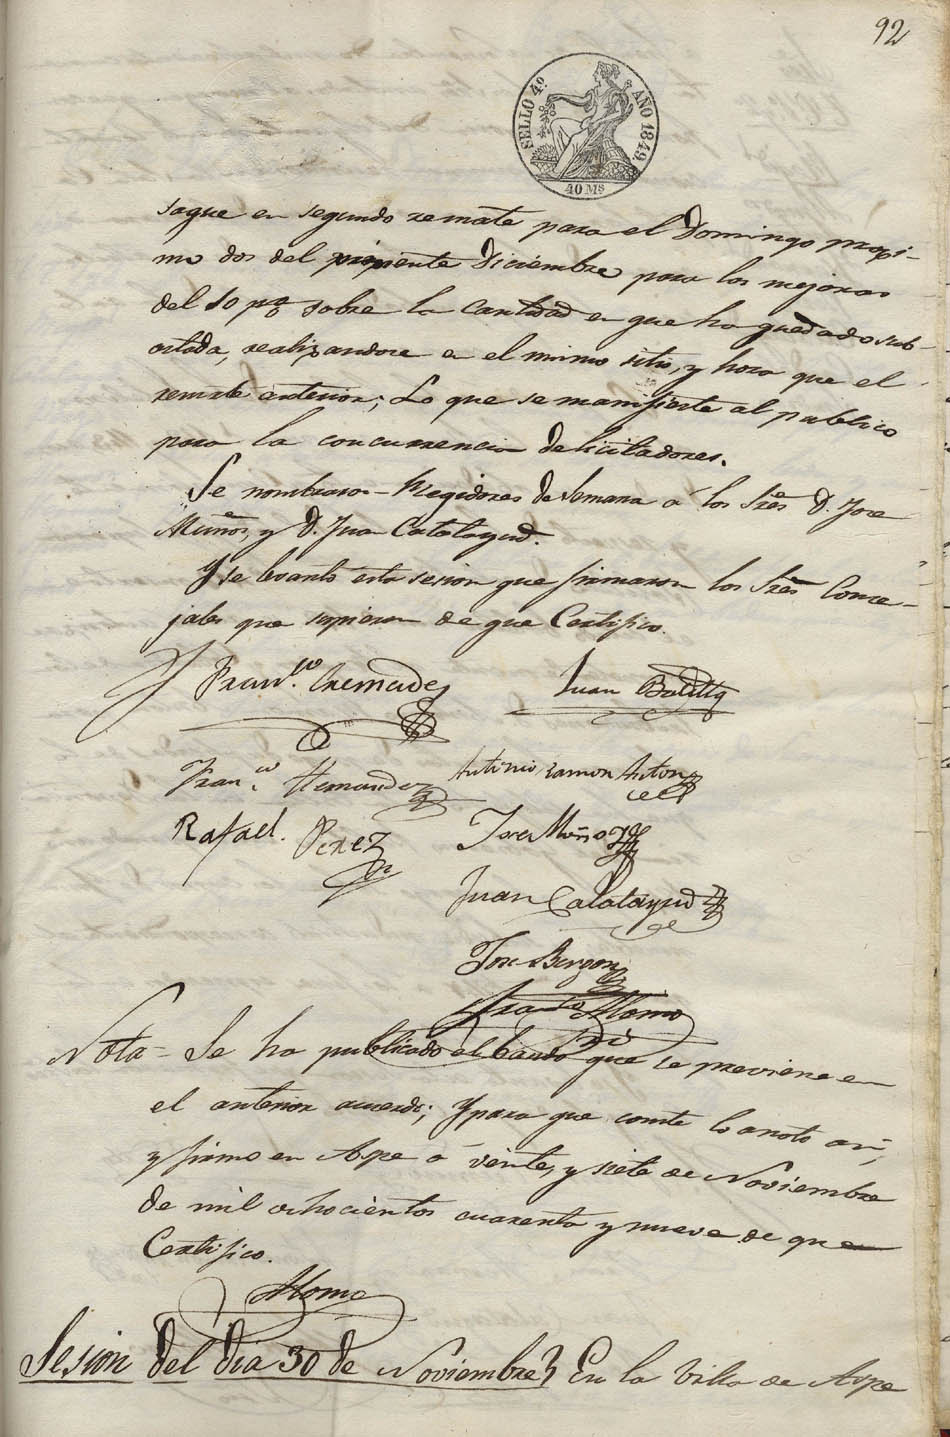 92
SELLO 4º AÑO 1849.
40 Ms
saque en segundo remate para el Domingo proxi-
mo dos del Diciembre para las mejoras
del 10 pg sobre la Cantidad en que ha quedado sub-
astada, realizandose en el mismo sitio, y hora que el
remate anterior; Lo que se manifieste al publico
para la concurrencia de licitadores.
Se nombraron Regidores de Semana á los Sres D. Jose
Muños, y D. Juan Calatayud.
Y se levantó esta sesion que firmaron los Sres Conce-
jales que supieron de que Certifico.
Franco. Cremades
Juan
Franco. Hernandez
Antonio Ramon Anton
Rafael. Perez
Jose Muñoz
Juan Calatayud
Jose
Alonso
Nota = Se ha publicado el bando que se previene en
el anterior acuerdo; Y para que conste lo anoto así,
y firmo en Aspe á veinte, y siete de Noviembre
de mil ochocientos cuarenta y nueve de que
Certifico.
Alonso
Sesion del dia 30 de Noviembre En la Villa de Aspe